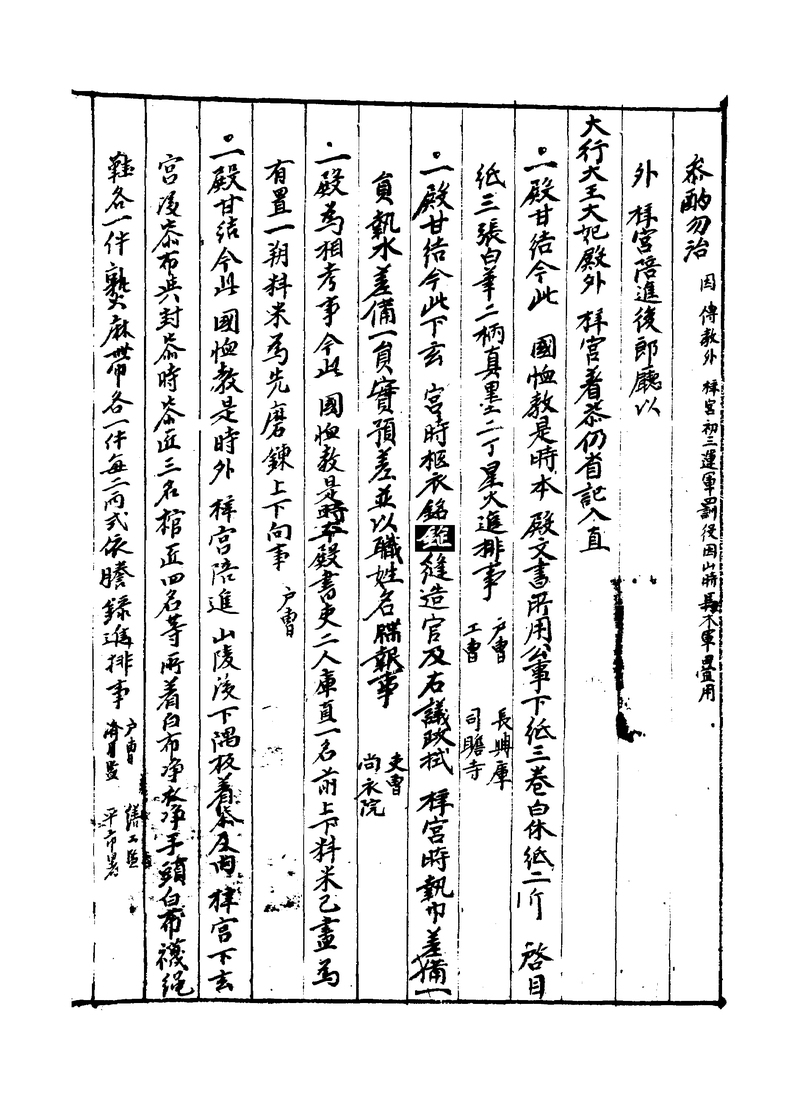 叅酌勿治 因 傳敎外 梓宮初三運軍罰役因山時長木軍疊用
外 梓宮陪進後郞廳以
大行大王大妃殿外 梓宮着柒仍省記入直
一殿甘結今此 國恤敎是時本 殿文書所用公事下紙三卷白休紙二斤 啓目
紙三張白筆二柄眞墨二丁星火進排事 戶曹 工曹 長興庫 司贍寺
一殿甘結今此下玄 宮時柩衣銘旌縫造官及右議政拭 梓宮時執巾差備一
員執水差備一員實預差並以職姓名牒報事 吏曹 尙衣院
一殿爲相考事今此 國恤敎是時本殿書吏二人庫直一名前上下料米已盡爲
有置一朔料米爲先磨鍊上下向事 戶曹
一殿甘結今此 國恤敎是時外 梓宮陪進 山陵後下隅板着柒及內 梓宮下玄
宮後柒布共封柒時柒匠三名棺匠四名等所着白布淨衣淨手頭白布襪繩
鞋各一件熟麻帶各一件每二兩式依謄錄進排事 戶曹 濟用監 繕工監 平市署